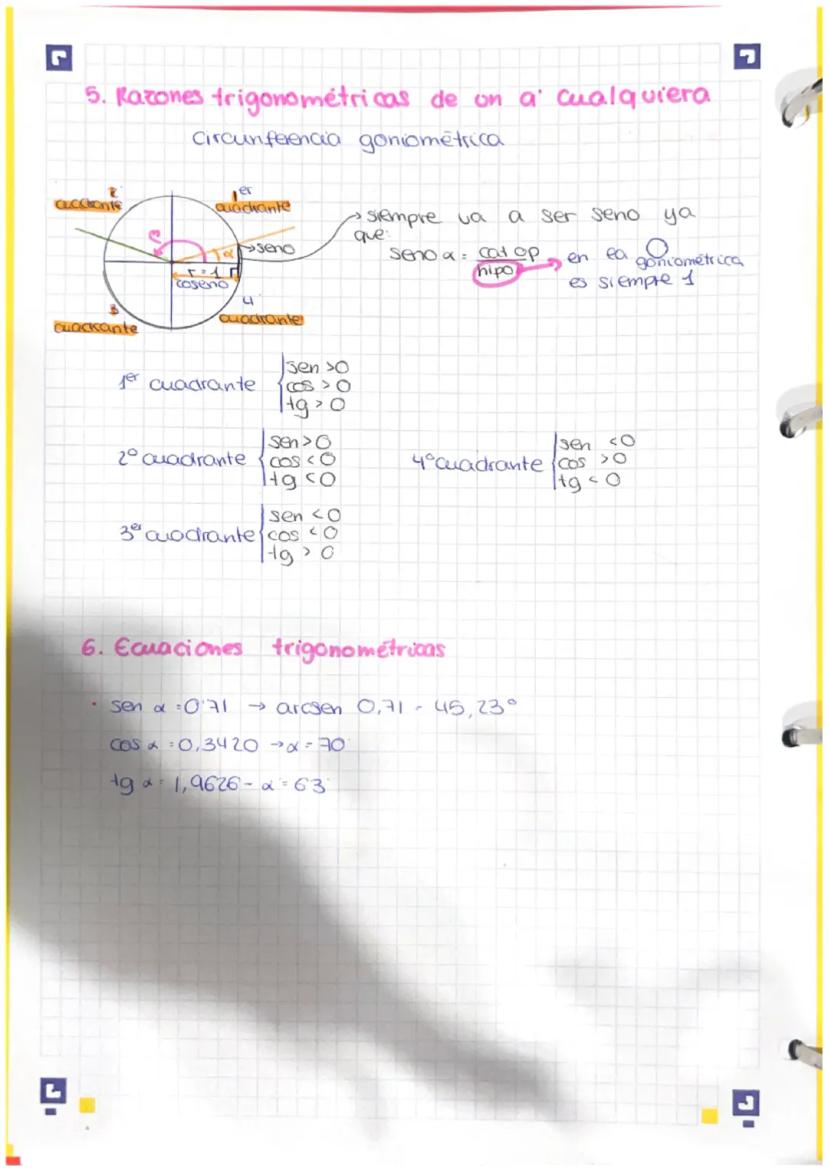 5. Razones trigonométricas de un a' cualquiera
circunferencia goniométrica
2º
cuadrante
1er
cuadrante
α
seno
r = 1
coseno
3
cuadrante
4
cuadrante
siempre va a ser seno ya
que:
seno α = cat op
hipo
en la goniométrica
es siempre 1
1er cuadrante
sen >0
cos > 0
tg > 0
2º cuadrante
sen > 0
cos < 0
tg < 0
4º cuadrante
sen < 0
cos > 0
tg < 0
3er cuadrante
sen < 0
cos < 0
tg > 0
6. Ecuaciones trigonométricas
· sen α = 0'71 → arcsen 0,71 - 45,23º
cos α = 0,3420 → α = 70º
tg α = 1,9626 - α = 63º